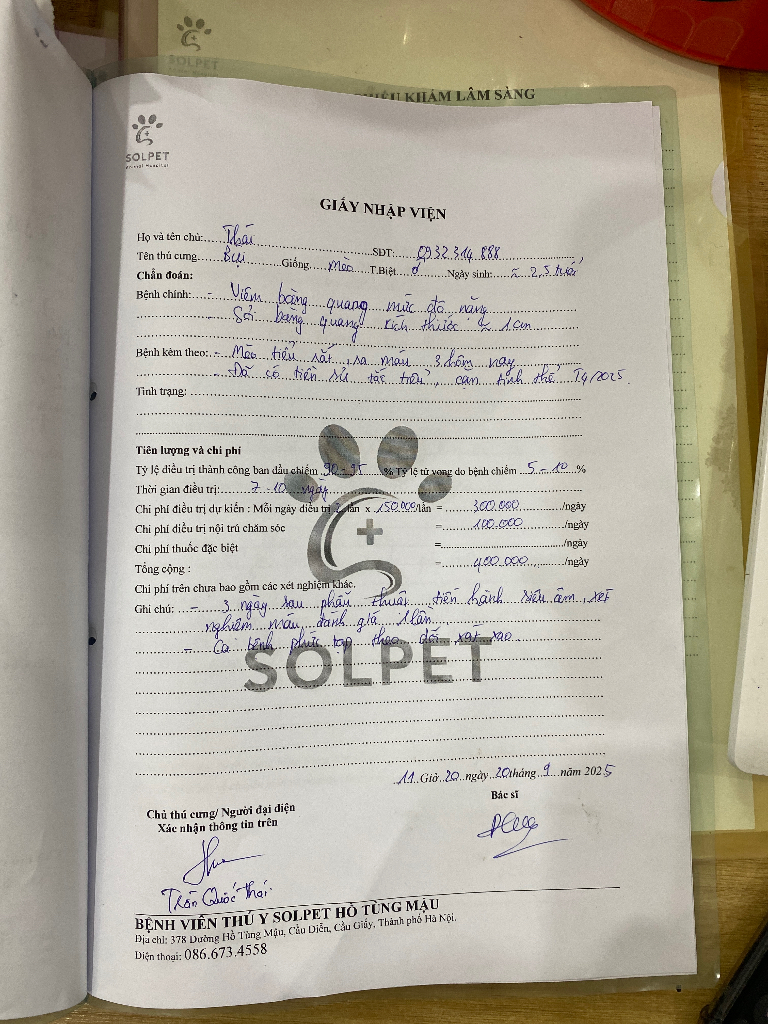 SOLPET
PHIẾU KHÁM LÂM SÀNG
SOLPET
Animal Hospital
GIẤY NHẬP VIỆN
Họ và tên chủ: Thái SĐT: 0932 314 888
Tên thú cưng: Bụi Giống: Mèo T.Biệt ♂ Ngày sinh: ~ 2,5 tuổi
Chẩn đoán:
Bệnh chính: - Viêm bàng quang mức độ nặng
- Sỏi bàng quang kích thước ~ 1cm
Bệnh kèm theo: - Mèo tiểu rắt, ra máu 3 hôm nay
- Đã có tiền sử tắc tiểu, cặn tinh thể T4/2025
Tình trạng:
Tiên lượng và chi phí
Tỷ lệ điều trị thành công ban đầu chiếm 90-95 % Tỷ lệ tử vong do bệnh chiếm 5-10 %
Thời gian điều trị: 7-10 ngày
Chi phí điều trị dự kiến : Mỗi ngày điều trị 2 lần x 150.000/lần = 300.000 /ngày
Chi phí điều trị nội trú chăm sóc = 100.000 /ngày
Chi phí thuốc đặc biệt = /ngày
Tổng cộng : = 400.000 /ngày
Chi phí trên chưa bao gồm các xét nghiệm khác.
Ghi chú: - 3 ngày sau phẫu thuật tiến hành siêu âm, xét
nghiệm máu, đánh giá 1 lần
- Ca bệnh phức tạp theo dõi sát sao
SOLPET
11 Giờ 20 ngày 20 tháng 9 năm 2025
Chủ thú cưng/ Người đại diện Bác sĩ
Xác nhận thông tin trên
Trần Quốc Thái
BỆNH VIỆN THÚ Y SOLPET HỒ TÙNG MẬU
Địa chỉ: 378 Đường Hồ Tùng Mậu, Cầu Diễn, Cầu Giấy, Thành phố Hà Nội.
Điện thoại: 086.673.4558